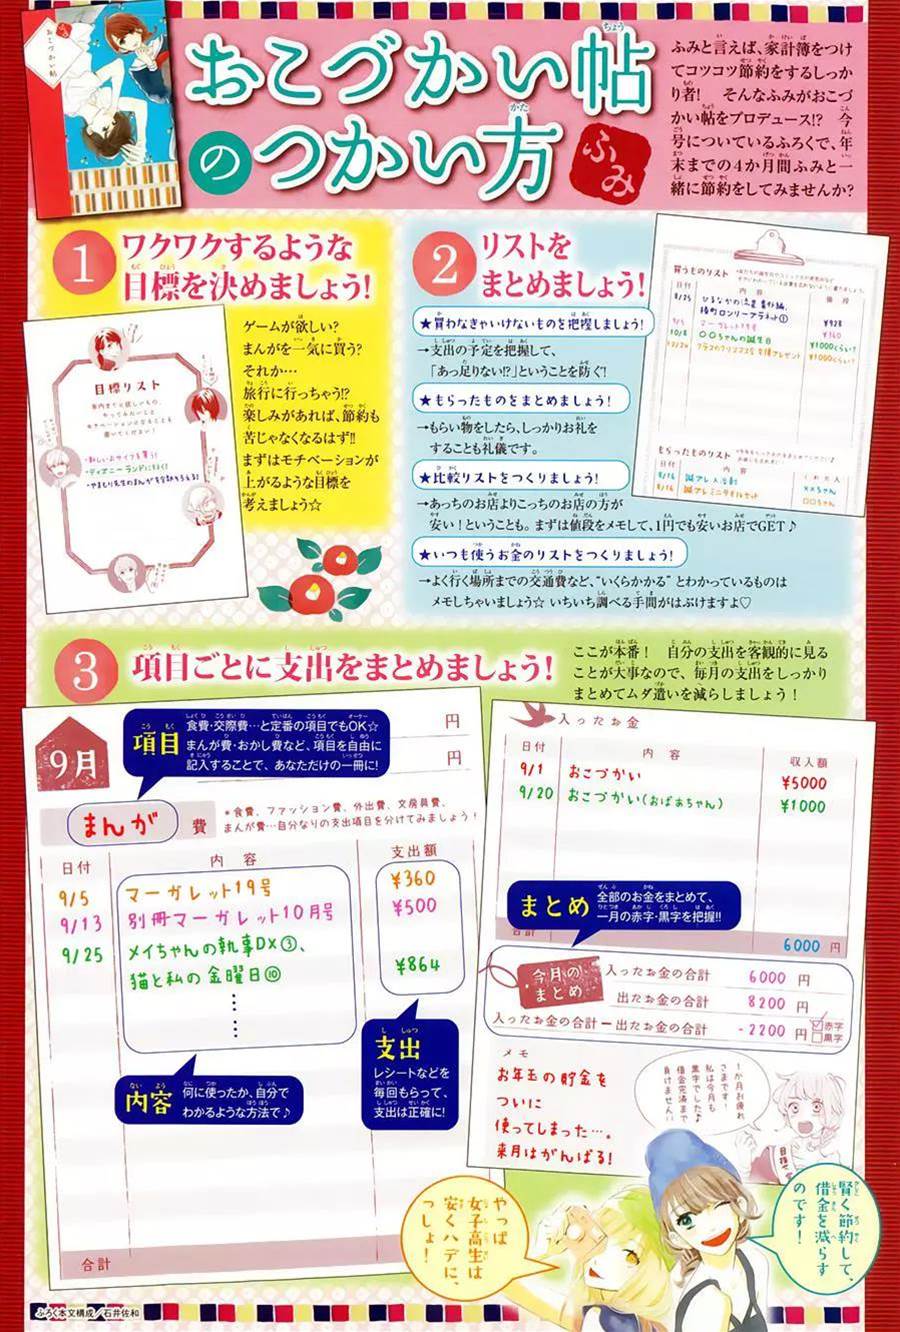 おこづかい帖
おこづかい帖
のつかい方
ふみ
ふみと言えば、家計簿をつけ
てコツコツ節約をするしっか
り者!　そんなふみがおこづ
かい帖をプロデュース!?　今
号についているふろくで、年
末までの4か月間ふみと一
緒に節約をしてみませんか?
1 ワクワクするような
目標を決めましょう!
目標リスト
・新しいおサイフを買う!
・ディズニーランドに行く!
ゲームが欲しい?
まんがを一気に買う?
それか…
旅行に行っちゃう!?
楽しみがあれば、節約も
苦じゃなくなるはず!!
まずはモチベーションが
上がるような目標を
考えましょう☆
2 リストを
まとめましょう!
★買わなきゃいけないものを把握しましょう!
→支出の予定を把握して、
「あっ足りない!?」ということを防ぐ!
★もらったものをまとめましょう!
→もらい物をしたら、しっかりお礼を
することも礼儀です。
★比較リストをつくりましょう!
→あっちのお店よりこっちのお店の方が
安い!ということも。まずは値段をメモして、1円でも安いお店でGET♪
★いつも使うお金のリストをつくりましょう!
→よく行く場所までの交通費など、“いくらかかる”とわかっているものは
メモしちゃいましょう☆ いちいち調べる手間がはぶけますよ♡
買うものリスト
日付 内容 値段
8/25 ひるなかの流星 番外編、
椿町ロンリープラネット① ¥928
9/5 マーガレット19号 ¥360
10/8 〇〇ちゃんの誕生日 ¥1000くらい?
12/24 クラスのクリスマス会 交換プレゼント ¥1000くらい?
もらったものリスト
日付 内容 くれた人
8/16 誠プレ入浴剤 ××ちゃん
8/16 誠プレミニタオルセット 〇〇ちゃん
3 項目ごとに支出をまとめましょう!
ここが本番!　自分の支出を客観的に見る
ことが大事なので、毎月の支出をしっかり
まとめてムダ遣いを減らしましょう!
9月
項目
食費・交際費…と定番の項目でもOK☆
まんが費・おかし費など、項目を自由に
記入することで、あなただけの一冊に!
円
円
まんが 費
*食費、ファッション費、外出費、文房具費、
まんが費…自分なりの支出項目を分けてみましょう!
日付 内容 支出額
9/5 マーガレット19号 ¥360
9/13 別冊マーガレット10月号 ¥500
9/25 メイちゃんの執事DX③、
猫と私の金曜日⑩ ¥864
内容
何に使ったか、自分で
わかるような方法で♪
支出
レシートなどを
毎回もらって、
支出は正確に!
合計
入ったお金
日付 内容 収入額
9/1 おこづかい ¥5000
9/20 おこづかい(おばあちゃん) ¥1000
まとめ
全部のお金をまとめて、
一月の赤字・黒字を把握!!
合計 6000 円
今月の
まとめ
入ったお金の合計 6000 円
出たお金の合計 8200 円
入ったお金の合計－出たお金の合計 -2200 円 ☑赤字
□黒字
メモ
お年玉の貯金を
ついに
使ってしまった…。
来月はがんばる!
1か月お疲れ
さまです!
私は今月も
黒字でした♪
借金完済まで
負けません!!
やっぱ
女子高生は
安くハデに、
っしょ!
賢く節約して、
借金を減らす
のです!
ふろく本文構成/石井佐和